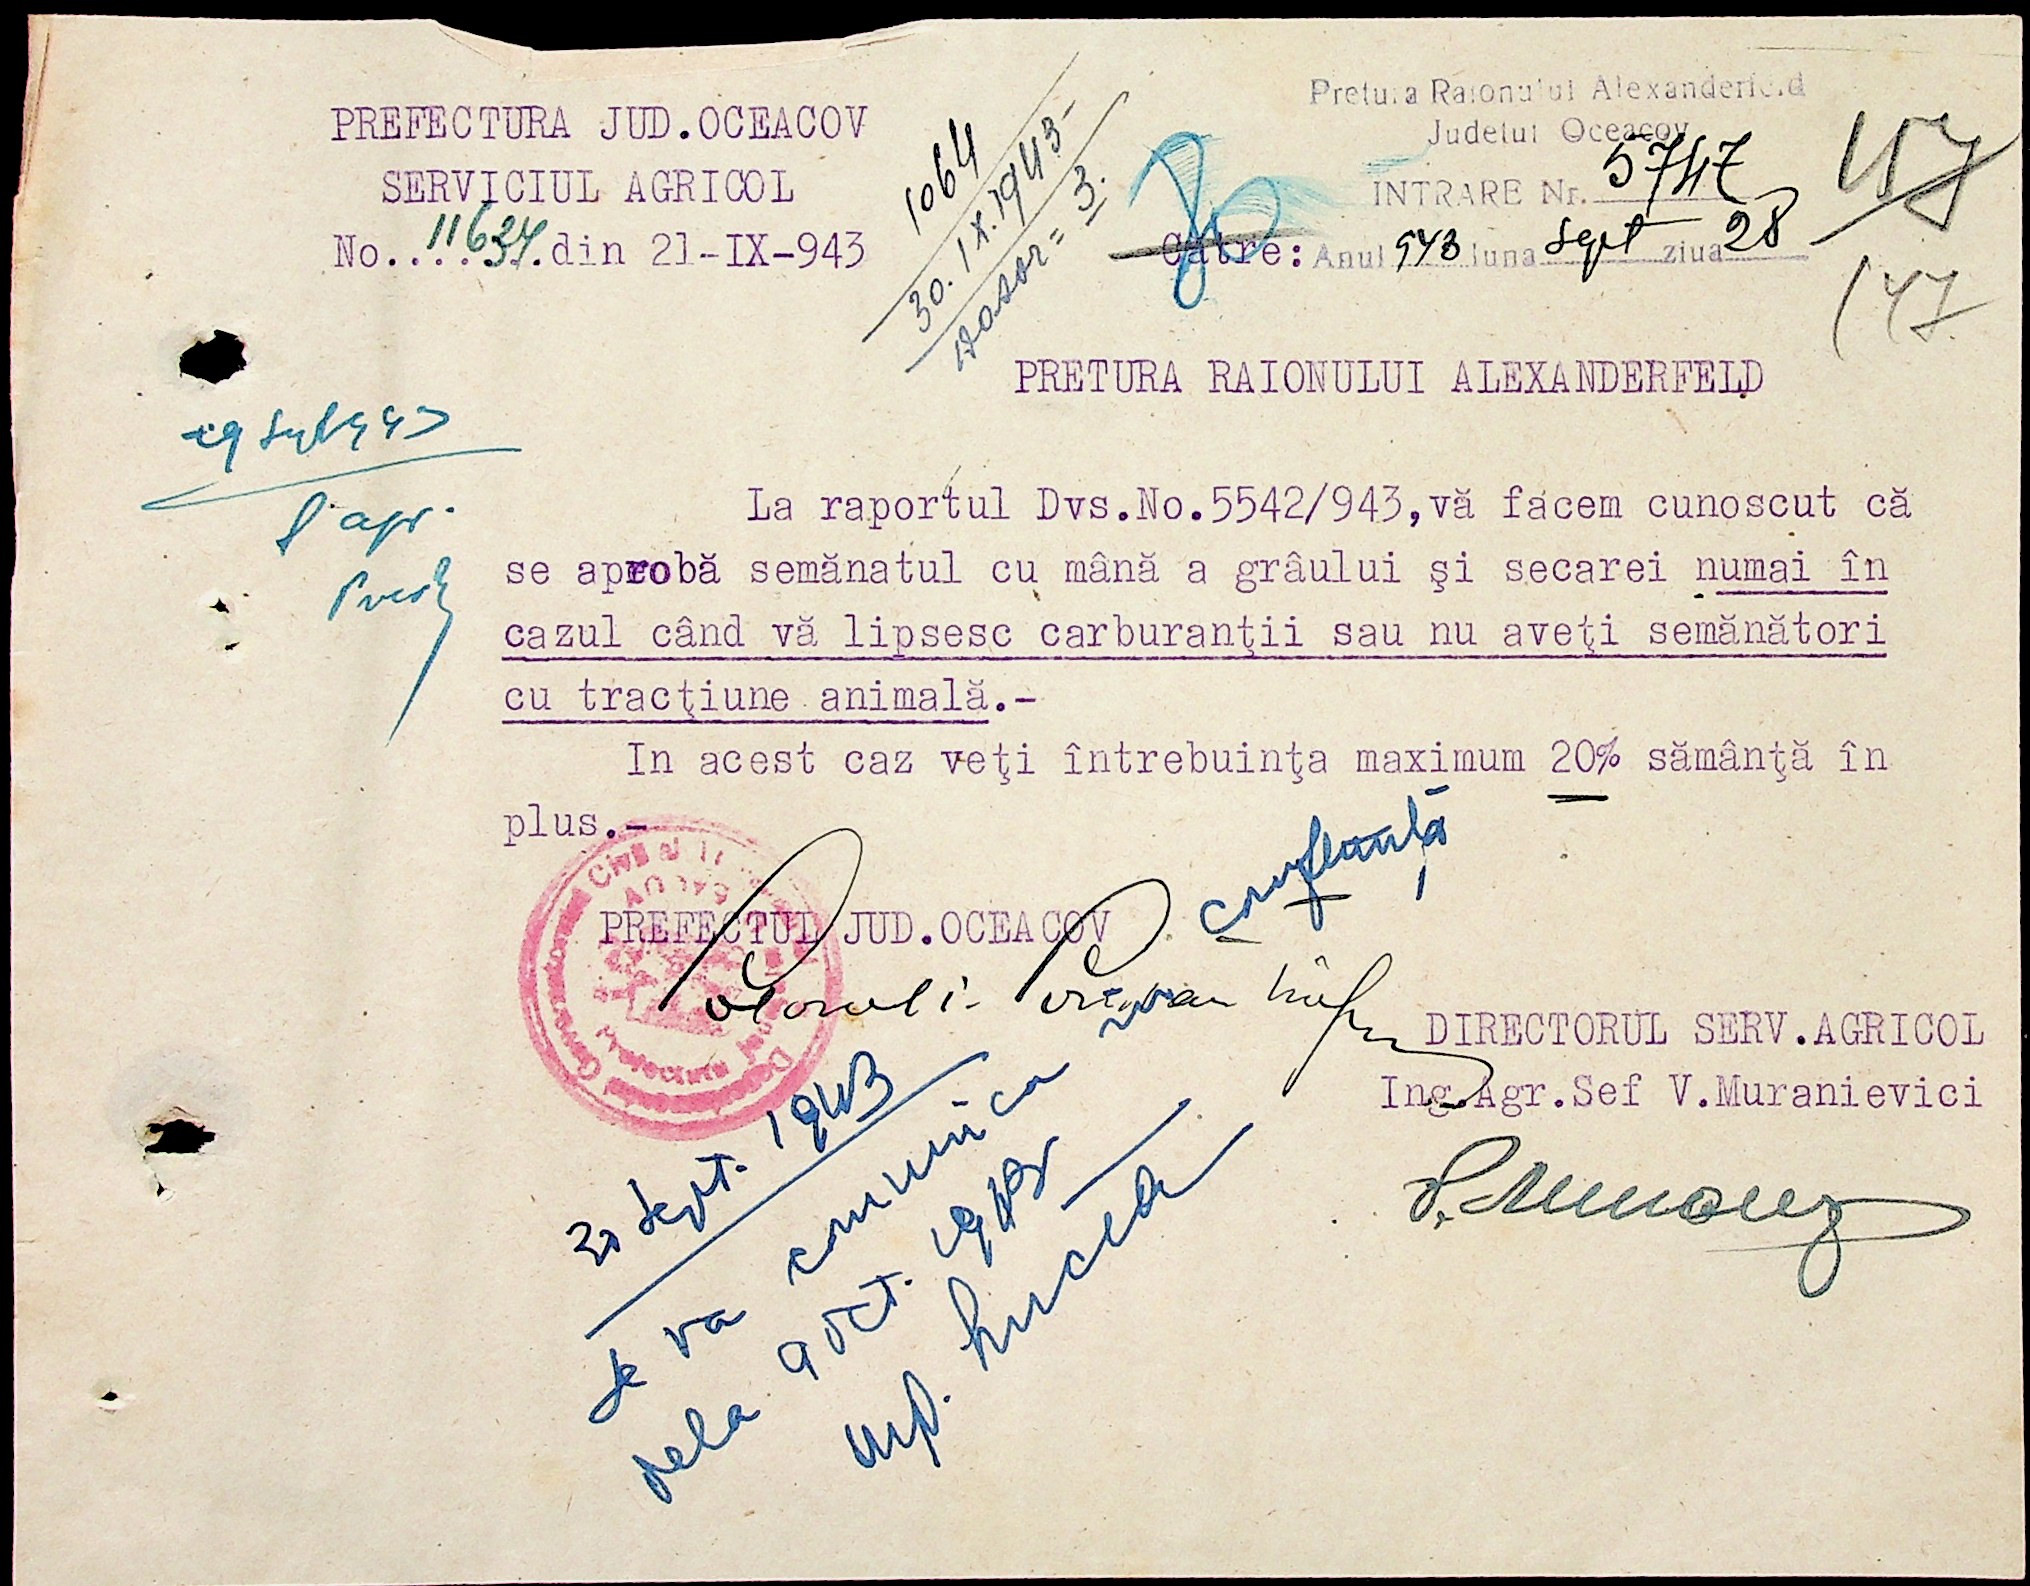 PREFECTURA JUD.OCEACOV
SERVICIUL AGRICOL
No...11634..din 21-IX-943
1064
30.IX.1943
dosar = 3.
Pretura Raionului Alexanderfeld
Judetul Oceacov
INTRARE Nr. 5747
Anul 943 luna Sept ziua 28
147
147
Către:
PRETURA RAIONULUI ALEXANDERFELD
29 Sept 943
S. agr.
La raportul Dvs.No.5542/943,vă facem cunoscut că
se aprobă semănatul cu mână a grâului şi secarei numai în
cazul când vă lipsesc carburanţii sau nu aveţi semănători
cu tracţiune animală.-
In acest caz veţi întrebuinţa maximum 20% sămânţă în
plus.-
PREFECTUL JUD.OCEACOV
DIRECTORUL SERV.AGRICOL
Ing.Agr.Sef V.Muranievici
30 Sept. 1943
Se va comunica în conferință
dela 9 Oct. 1943